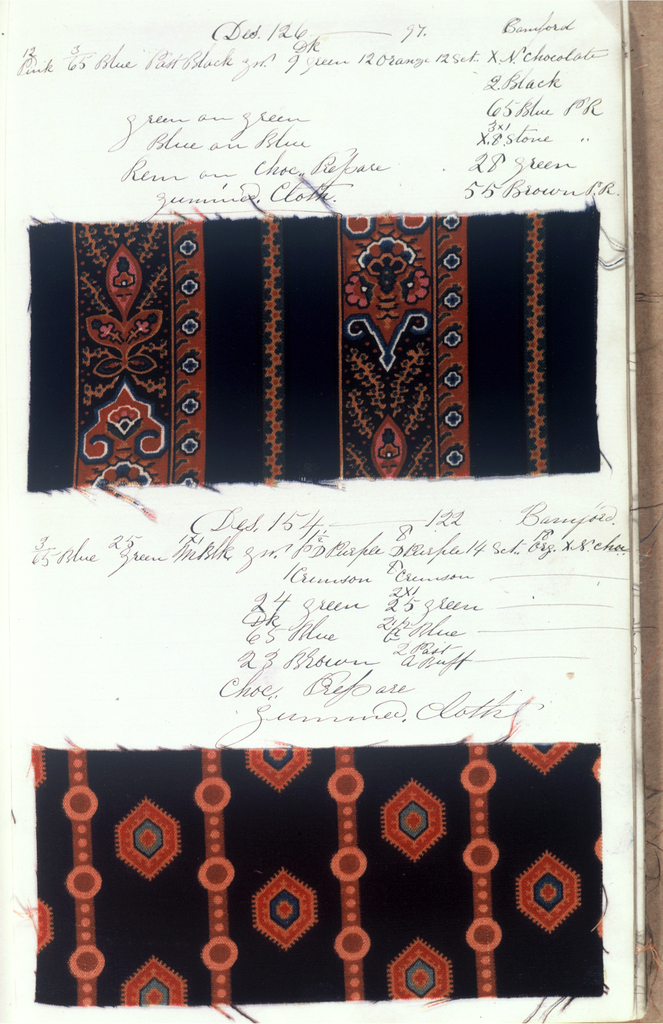 Des. 126 — 97. Bamford
12 Pink 3/65 Blue Past Black gr. 9 Dk green 12 Orange 12 Set. X N. Chocolate
2 Black
65 Blue P.R
3x1 X.8. Stone "
28 green
55 Brown P.R.
green on green
Blue on Blue
Rem on Choc. Prepare
gummed. Cloth.
Des. 154 — 122 Bamford
3/65 Blue 25 green Blk gr. D Purple 8 D Purple 14 Set. 18 Org. X N. Choc
1 Crimson 8 Crimson
24 green 2x1 25 green
Dk 65 Blue Blue
23 Brown 2 Past Buff
Choc. Prepare
gummed. Cloth